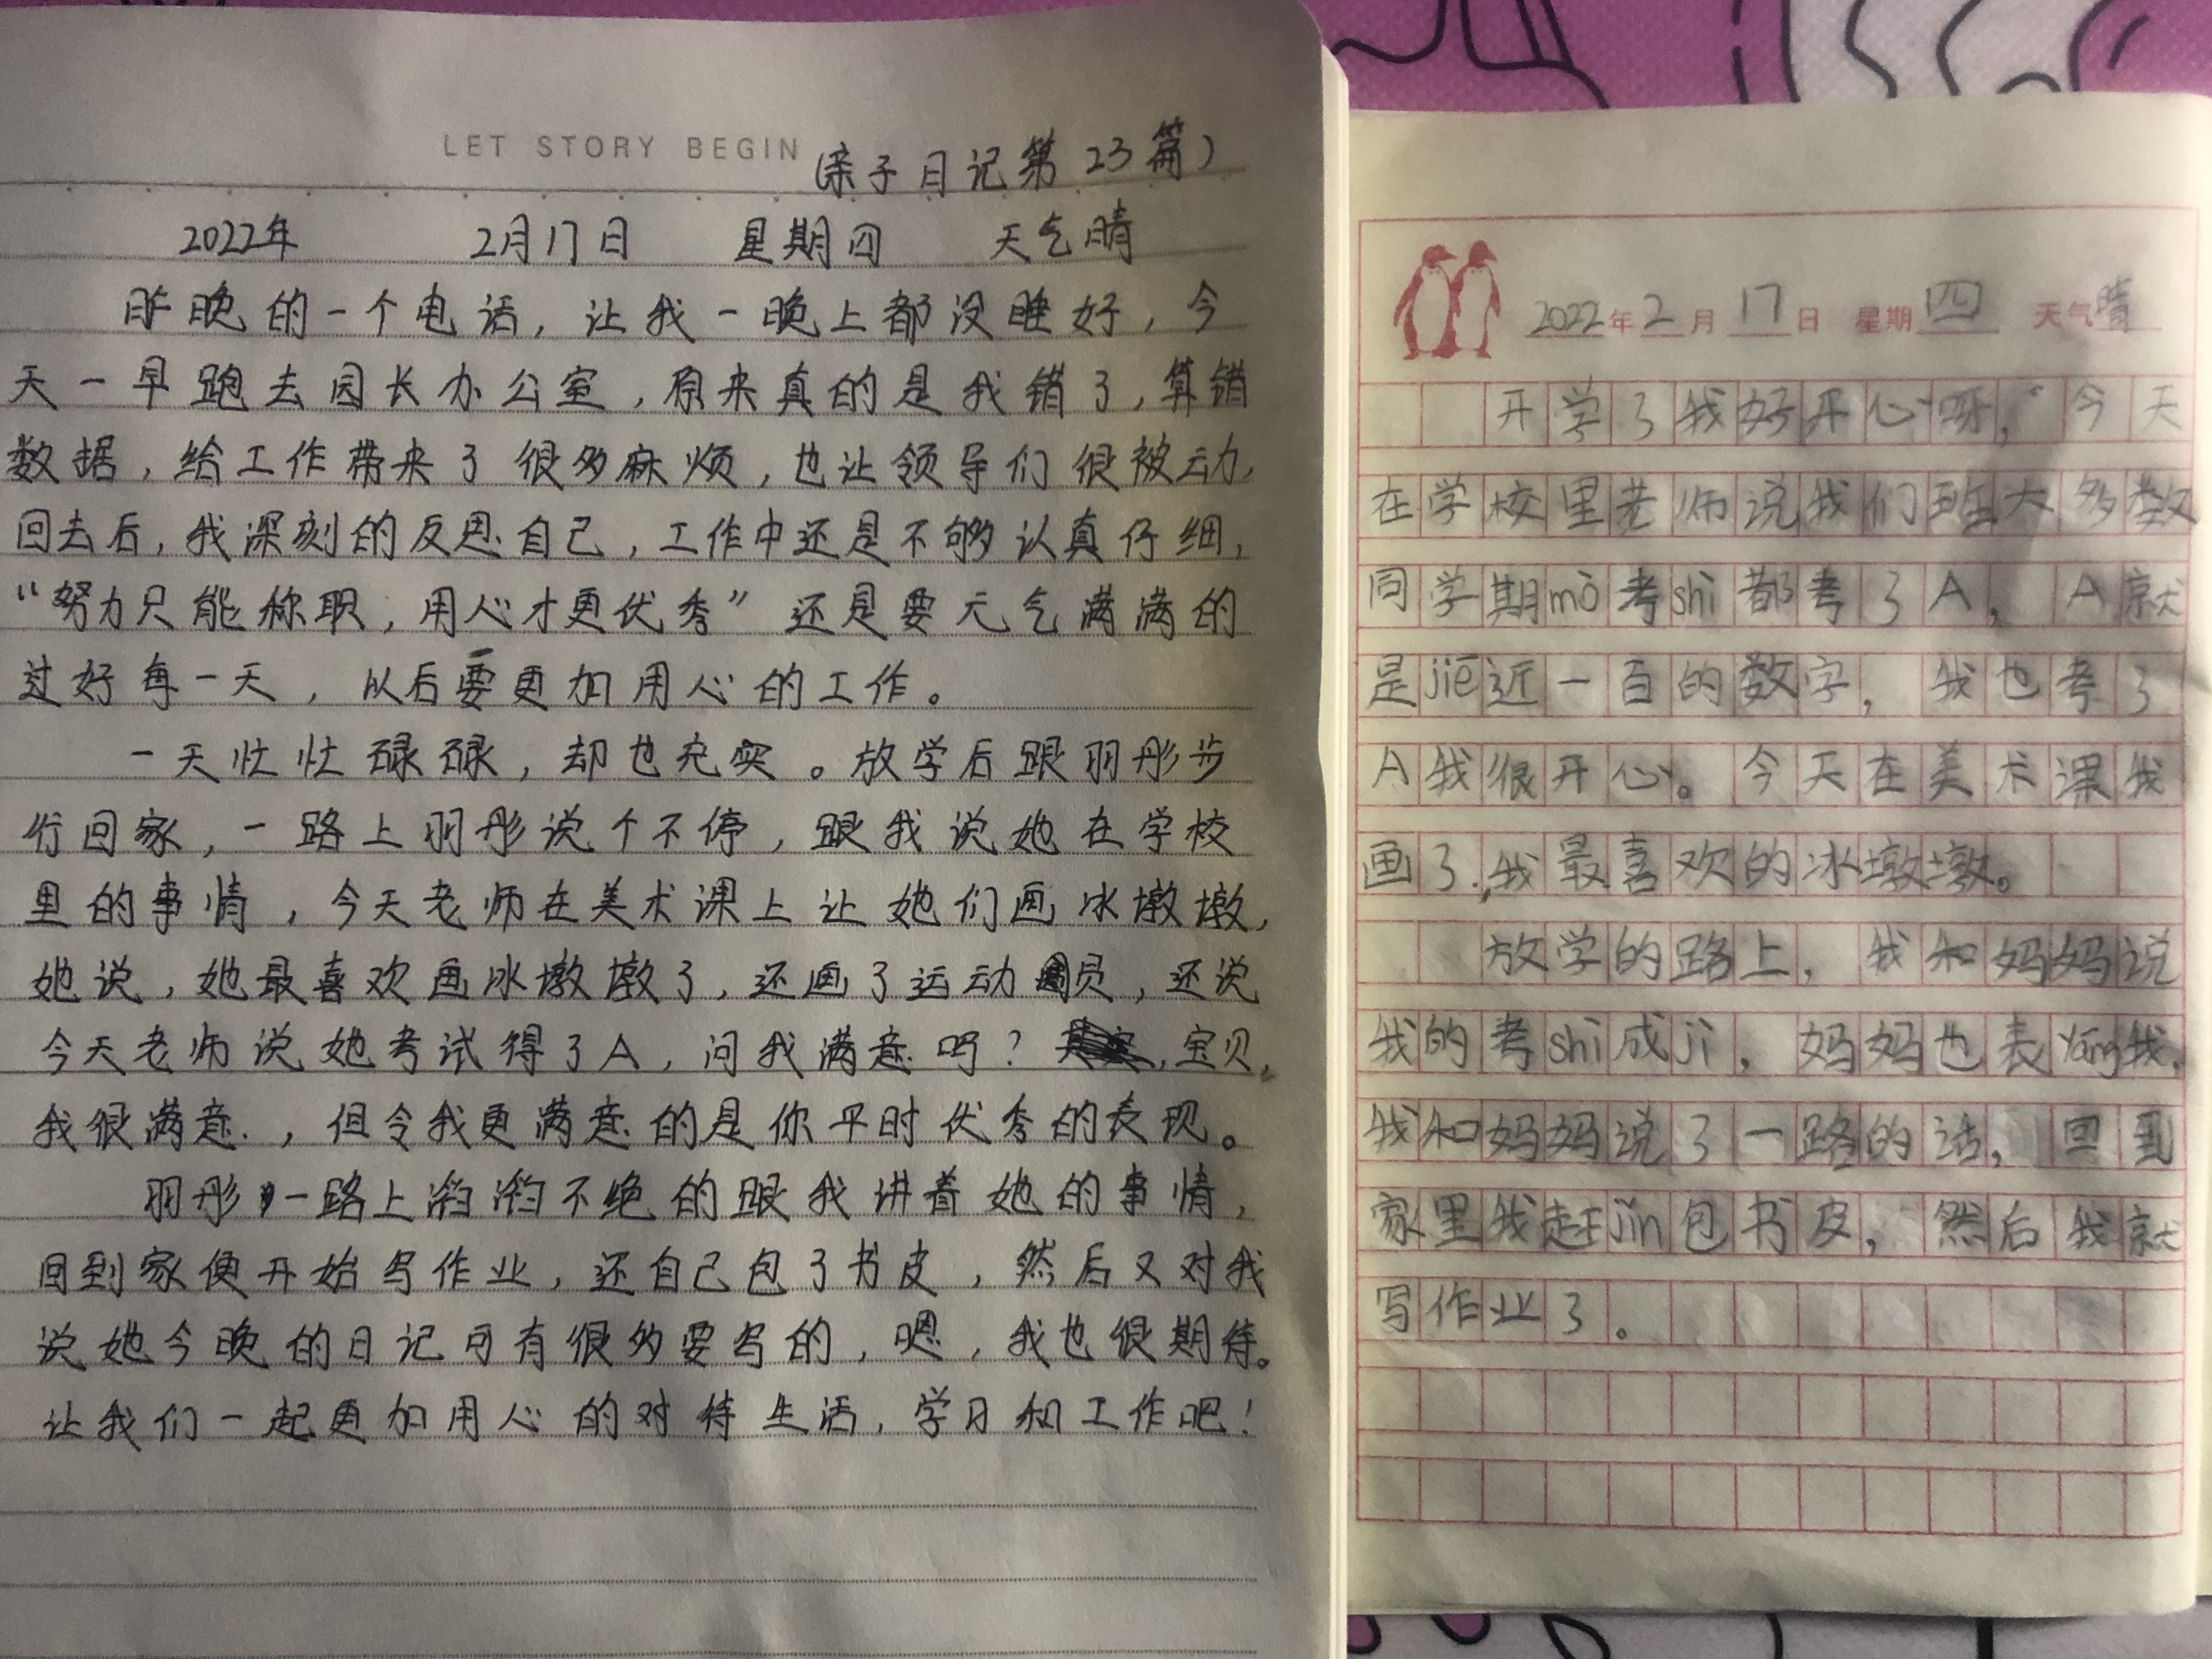 LET STORY BEGIN
(亲子日记第23篇)
2022年 2月17日 星期四 天气晴
昨晚的一个电话,让我一晚上都没睡好,今
天一早跑去园长办公室,原来真的是我错了,算错
数据,给工作带来了很多麻烦,也让领导们很被动,
回去后,我深刻的反思自己,工作中还是不够认真仔细,
“努力只能称职,用心才更优秀”还是要元气满满的
过好每一天,以后要更加用心的工作。
一天忙忙碌碌,却也充实。放学后跟羽彤步
行回家,一路上羽彤说个不停,跟我说她在学校
里的事情,今天老师在美术课上让她们画冰墩墩,
她说,她最喜欢画冰墩墩了,还画了运动员,还说
今天老师说她考试得了A,问我满意吗?,宝贝,
我很满意.,但令我更满意的是你平时优秀的表现。
羽彤一路上滔滔不绝的跟我讲着她的事情,
回到家便开始写作业,还自己包了书皮,然后又对我
说她今晚的日记可有很多要写的,嗯,我也很期待。
让我们一起更加用心的对待生活,学习和工作吧!
2022年2月17日 星期四 天气晴
开学了我好开心呀,今天
在学校里老师说我们班大多数
同学期mò考shì都考了A,A就
是jiē近一百的数字,我也考了
A我很开心。今天在美术课我
画了.我最喜欢的冰墩墩。
放学的路上,我和妈妈说
我的考shì成jì,妈妈也表yáng我.
我和妈妈说了一路的话,回到
家里我赶jǐn包书皮,然后我就
写作业了。